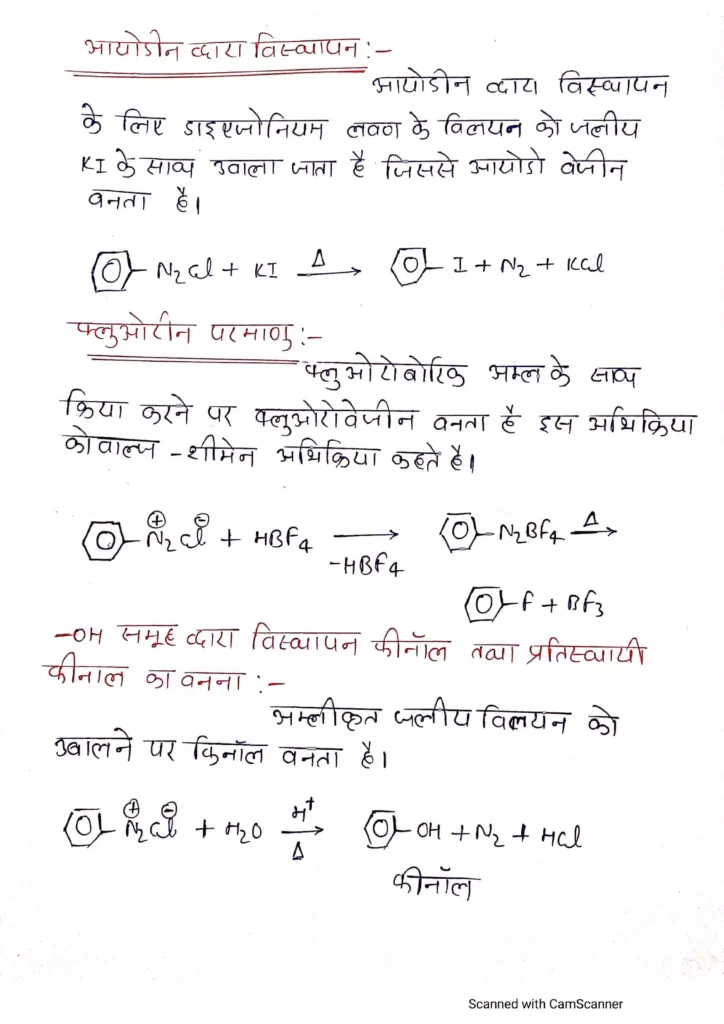 आयोडीन द्वारा विस्थापन :-
आयोडीन द्वारा विस्थापन
के लिए डाइएजोनियम लवण के विलयन को जलीय
KI के साथ उबाला जाता है जिससे आयोडो बेंजीन
बनता है।
N₂Cl + KI Δ→ I + N₂ + KCl
फ्लुओरीन परमाणु :-
फ्लुओरोबोरिक अम्ल के साथ
क्रिया करने पर फ्लुओरोबेंजीन बनता है इस अभिक्रिया
को वाल्ज - शीमेन अभिक्रिया कहते है।
N₂⊕ Cl⊖ + HBF₄ → -HBF₄ N₂BF₄ Δ→
F + BF₃
-OH समूह द्वारा विस्थापन फीनॉल तथा प्रतिस्थायी
फीनाल का बनना :-
अम्लीकृत जलीय विलयन को
उबालने पर फिनॉल बनता है।
N₂⊕ Cl⊖ + H₂O H⁺→ Δ OH + N₂ + HCl
फीनॉल
Scanned with CamScanner